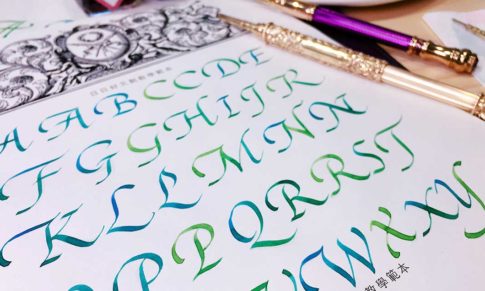 A A B C C D E
F G G H I J R
K L L M N N
P P Q R R S T
W X X Y
教學範本